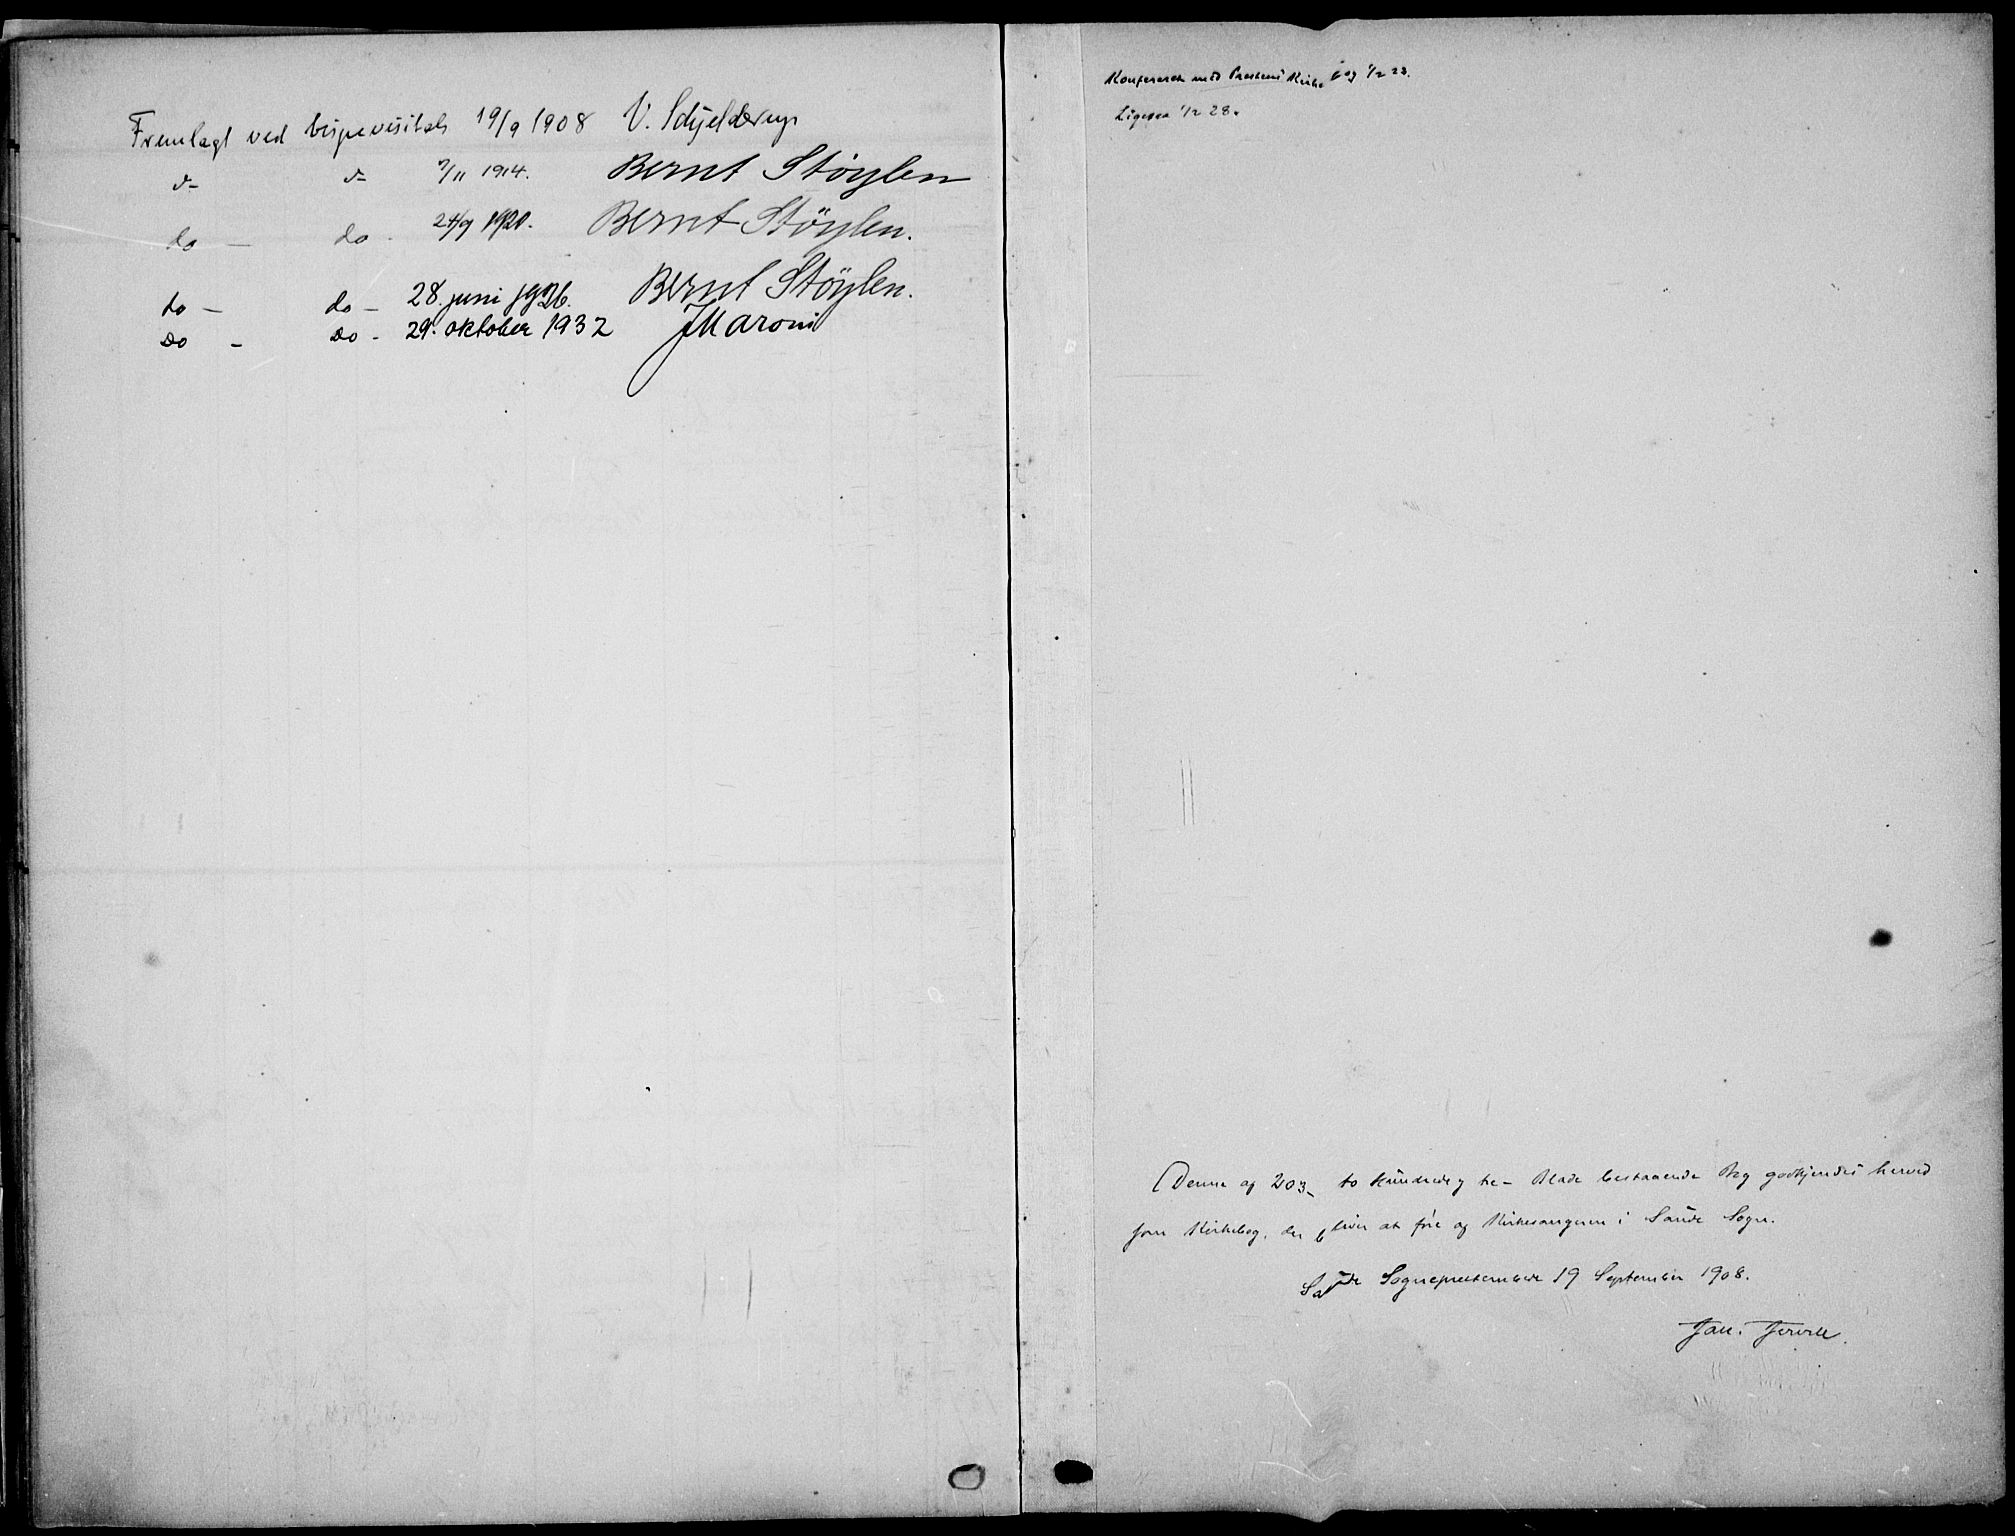 Fremlagt ved bispevisitats 19/9 1908 V. Schjelderup
do do 7/11 1914. Bernt Støylen
do — do - 24/9 1920. Bernt Støylen.
do — do — 28. juni 1926. Bernt Støylen.
Do - Do - 29. oktober 1932 JMaroni
Konfereret med Prestens Kirkebog 1/2 23.
Ligesaa 1/2 28.
Denne af 203 - to hundrede og tre - Blade bestaaende Bog godkjendes herved
som Kirkebog, der bliver at føre af Kirkesangeren i Saude Sogn.
Saude Sogneprestembede 19 September 1908.